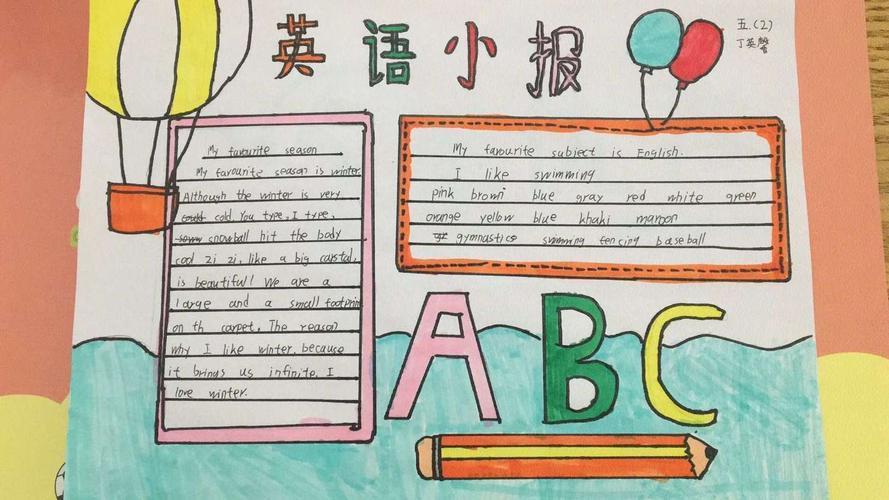 英语小报
五.(2)
丁英馨
My favourite season
My favourite season is winter.
Although the winter is very
cold. You type, I type,
snowball hit the body
cool zi zi, like a big carstal,
is beautiful! We are a
large and a small footprin
on th carpet. The reason
why I like winter. because
it brings us infinite. I
love winter.
My favourite subject is English.
I like swimming
pink brown blue gray red white green
orange yellow blue khaki maroon
gymnastics swimming fencing baseball
ABC